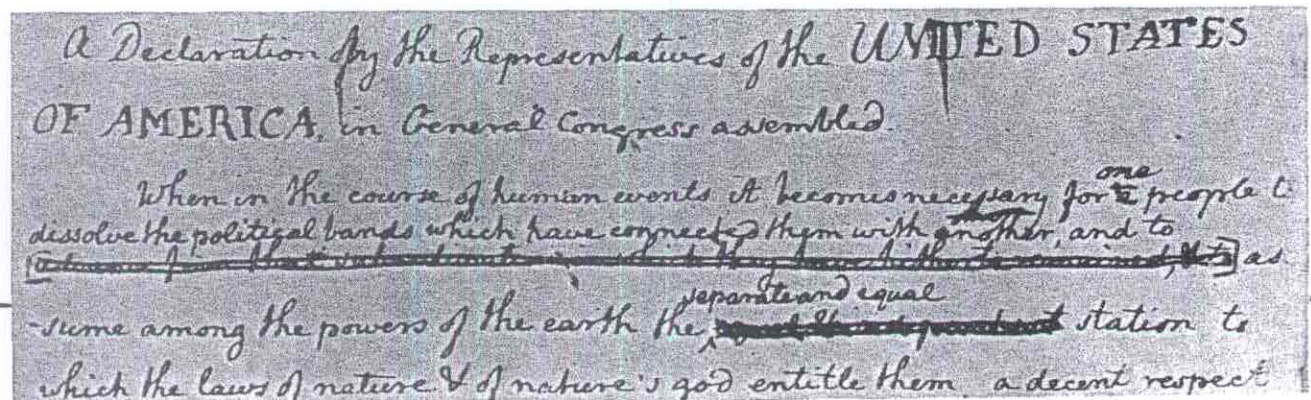 A Declaration by the Representatives of the UNITED STATES
OF AMERICA, in General Congress assembled.
When in the course of human events it becomes necessary for one people to
dissolve the political bands which have connected them with another, and to
as
separate and equal
-sume among the powers of the earth the station to
which the laws of nature & of nature's god entitle them a decent respect